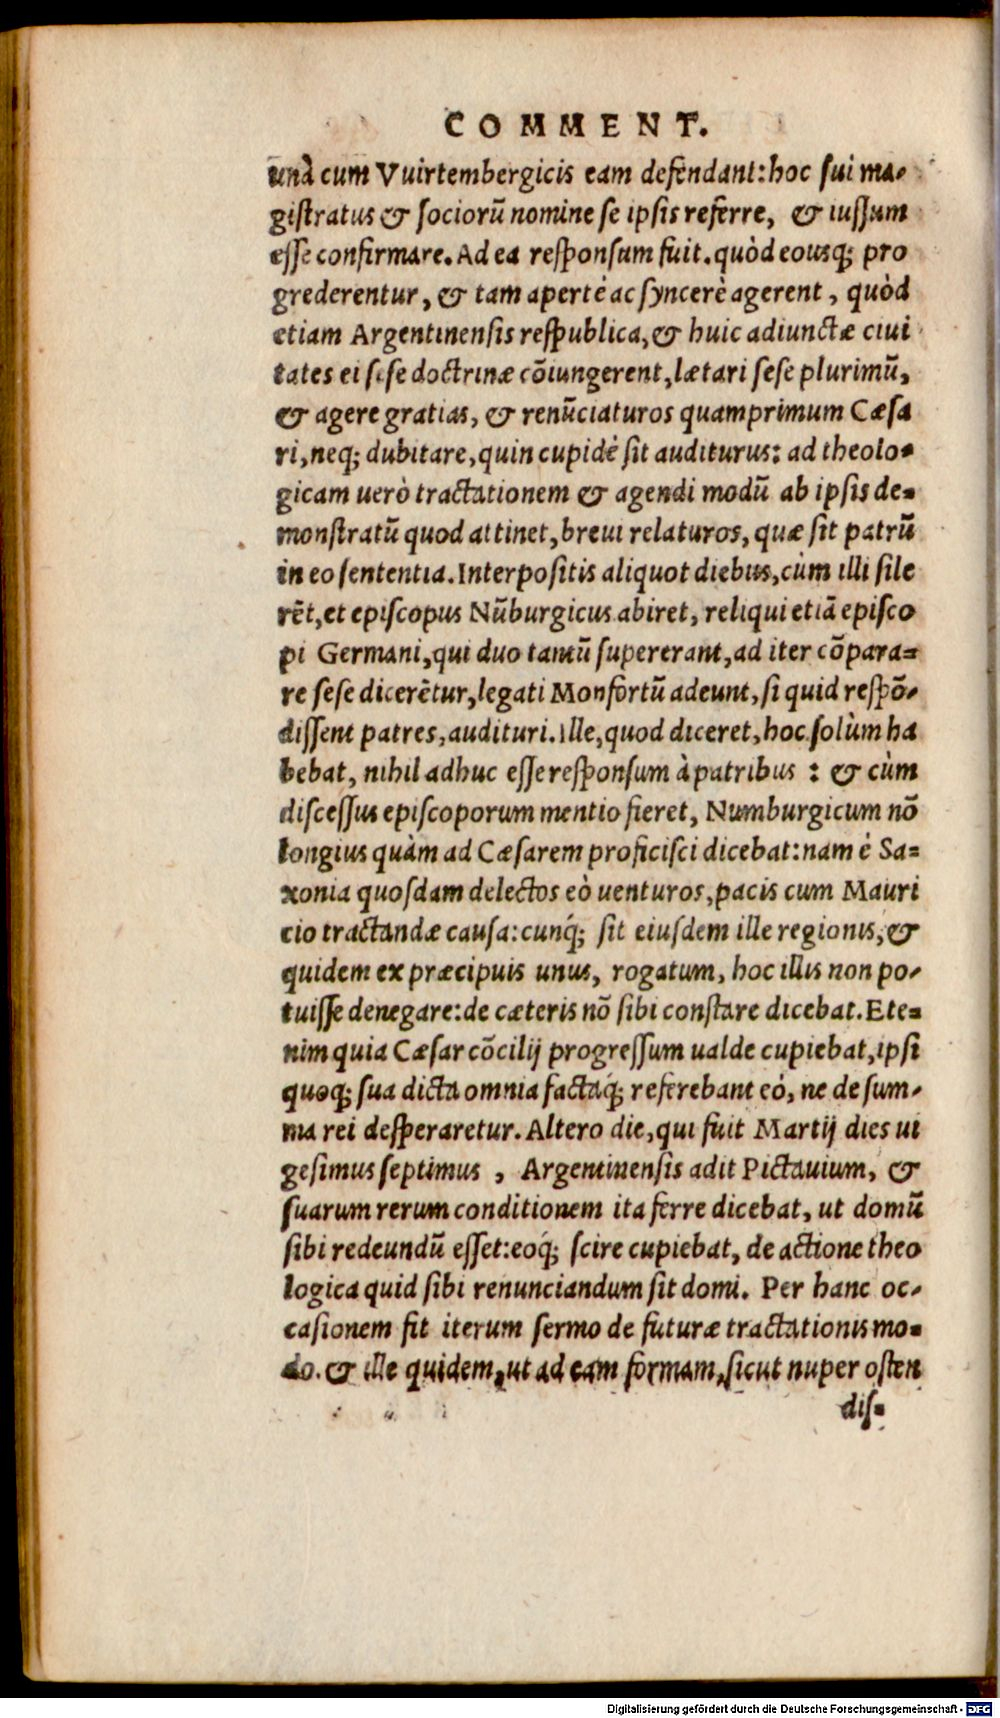 COMMENT.
unà cum Vuirtembergicis eam defendant: hoc sui ma-
gistratus & sociorū nomine se ipsis referre, & iussum
esse confirmare. Ad ea responsum fuit. quòd eousq; pro
grederentur, & tam apertè ac syncerè agerent, quòd
etiam Argentinensis respublica, & huic adiunctæ ciui
tates ei sese doctrinæ cōiungerent, lætari sese plurimū,
& agere gratias, & renūciaturos quamprimum Cæsa
ri, neq; dubitare, quin cupidè sit auditurus: ad theolo-
gicam uerò tractationem & agendi modū ab ipsis de-
monstratū quod attinet, breui relaturos, quæ sit patrū
in eo sententia. Interpositis aliquot diebus, cùm illi sile
rēt, et episcopus Nūburgicus abiret, reliqui etiā episco
pi Germani, qui duo tantū supererant, ad iter cōpara-
re sese dicerētur, legati Monfortū adeunt, si quid respō-
dissent patres, audituri. Ille, quod diceret, hoc solùm ha
bebat, nihil adhuc esse responsum à patribus : & cùm
discessus episcoporum mentio fieret, Numburgicum nō
longius quàm ad Cæsarem proficisci dicebat: nam è Sa-
xonia quosdam delectos eò uenturos, pacis cum Mauri
cio tractandæ causa: cunq́; sit eiusdem ille regionis, &
quidem ex præcipuis unus, rogatum, hoc illis non po-
tuisse denegare: de cæteris nō sibi constare dicebat. Ete-
nim quia Cæsar cōcilij progressum ualde cupiebat, ipsi
quoq; sua dicta omnia factaq́; referebant eò, ne de sum-
ma rei desperaretur. Altero die, qui fuit Martij dies ui
gesimus septimus , Argentinensis adit Pictauium, &
suarum rerum conditionem ita ferre dicebat, ut domū
sibi redeundū esset: eoq́; scire cupiebat, de actione theo
logica quid sibi renunciandum sit domi. Per hanc oc-
casionem fit iterum sermo de futuræ tractationis mo-
do. & ille quidem, ut ad eam formam, sicut nuper osten
dis-
Digitalisierung gefördert durch die Deutsche Forschungsgemeinschaft - DFG